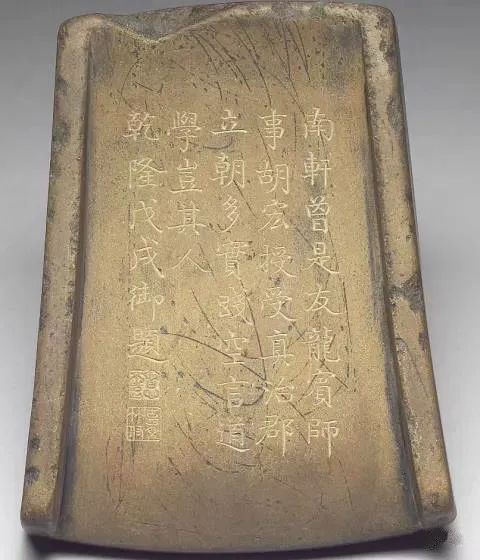 南軒曾是友龍賓師
事胡宏授受真治郡
立朝多實踐空言道
學豈其人
乾隆戊戌御題